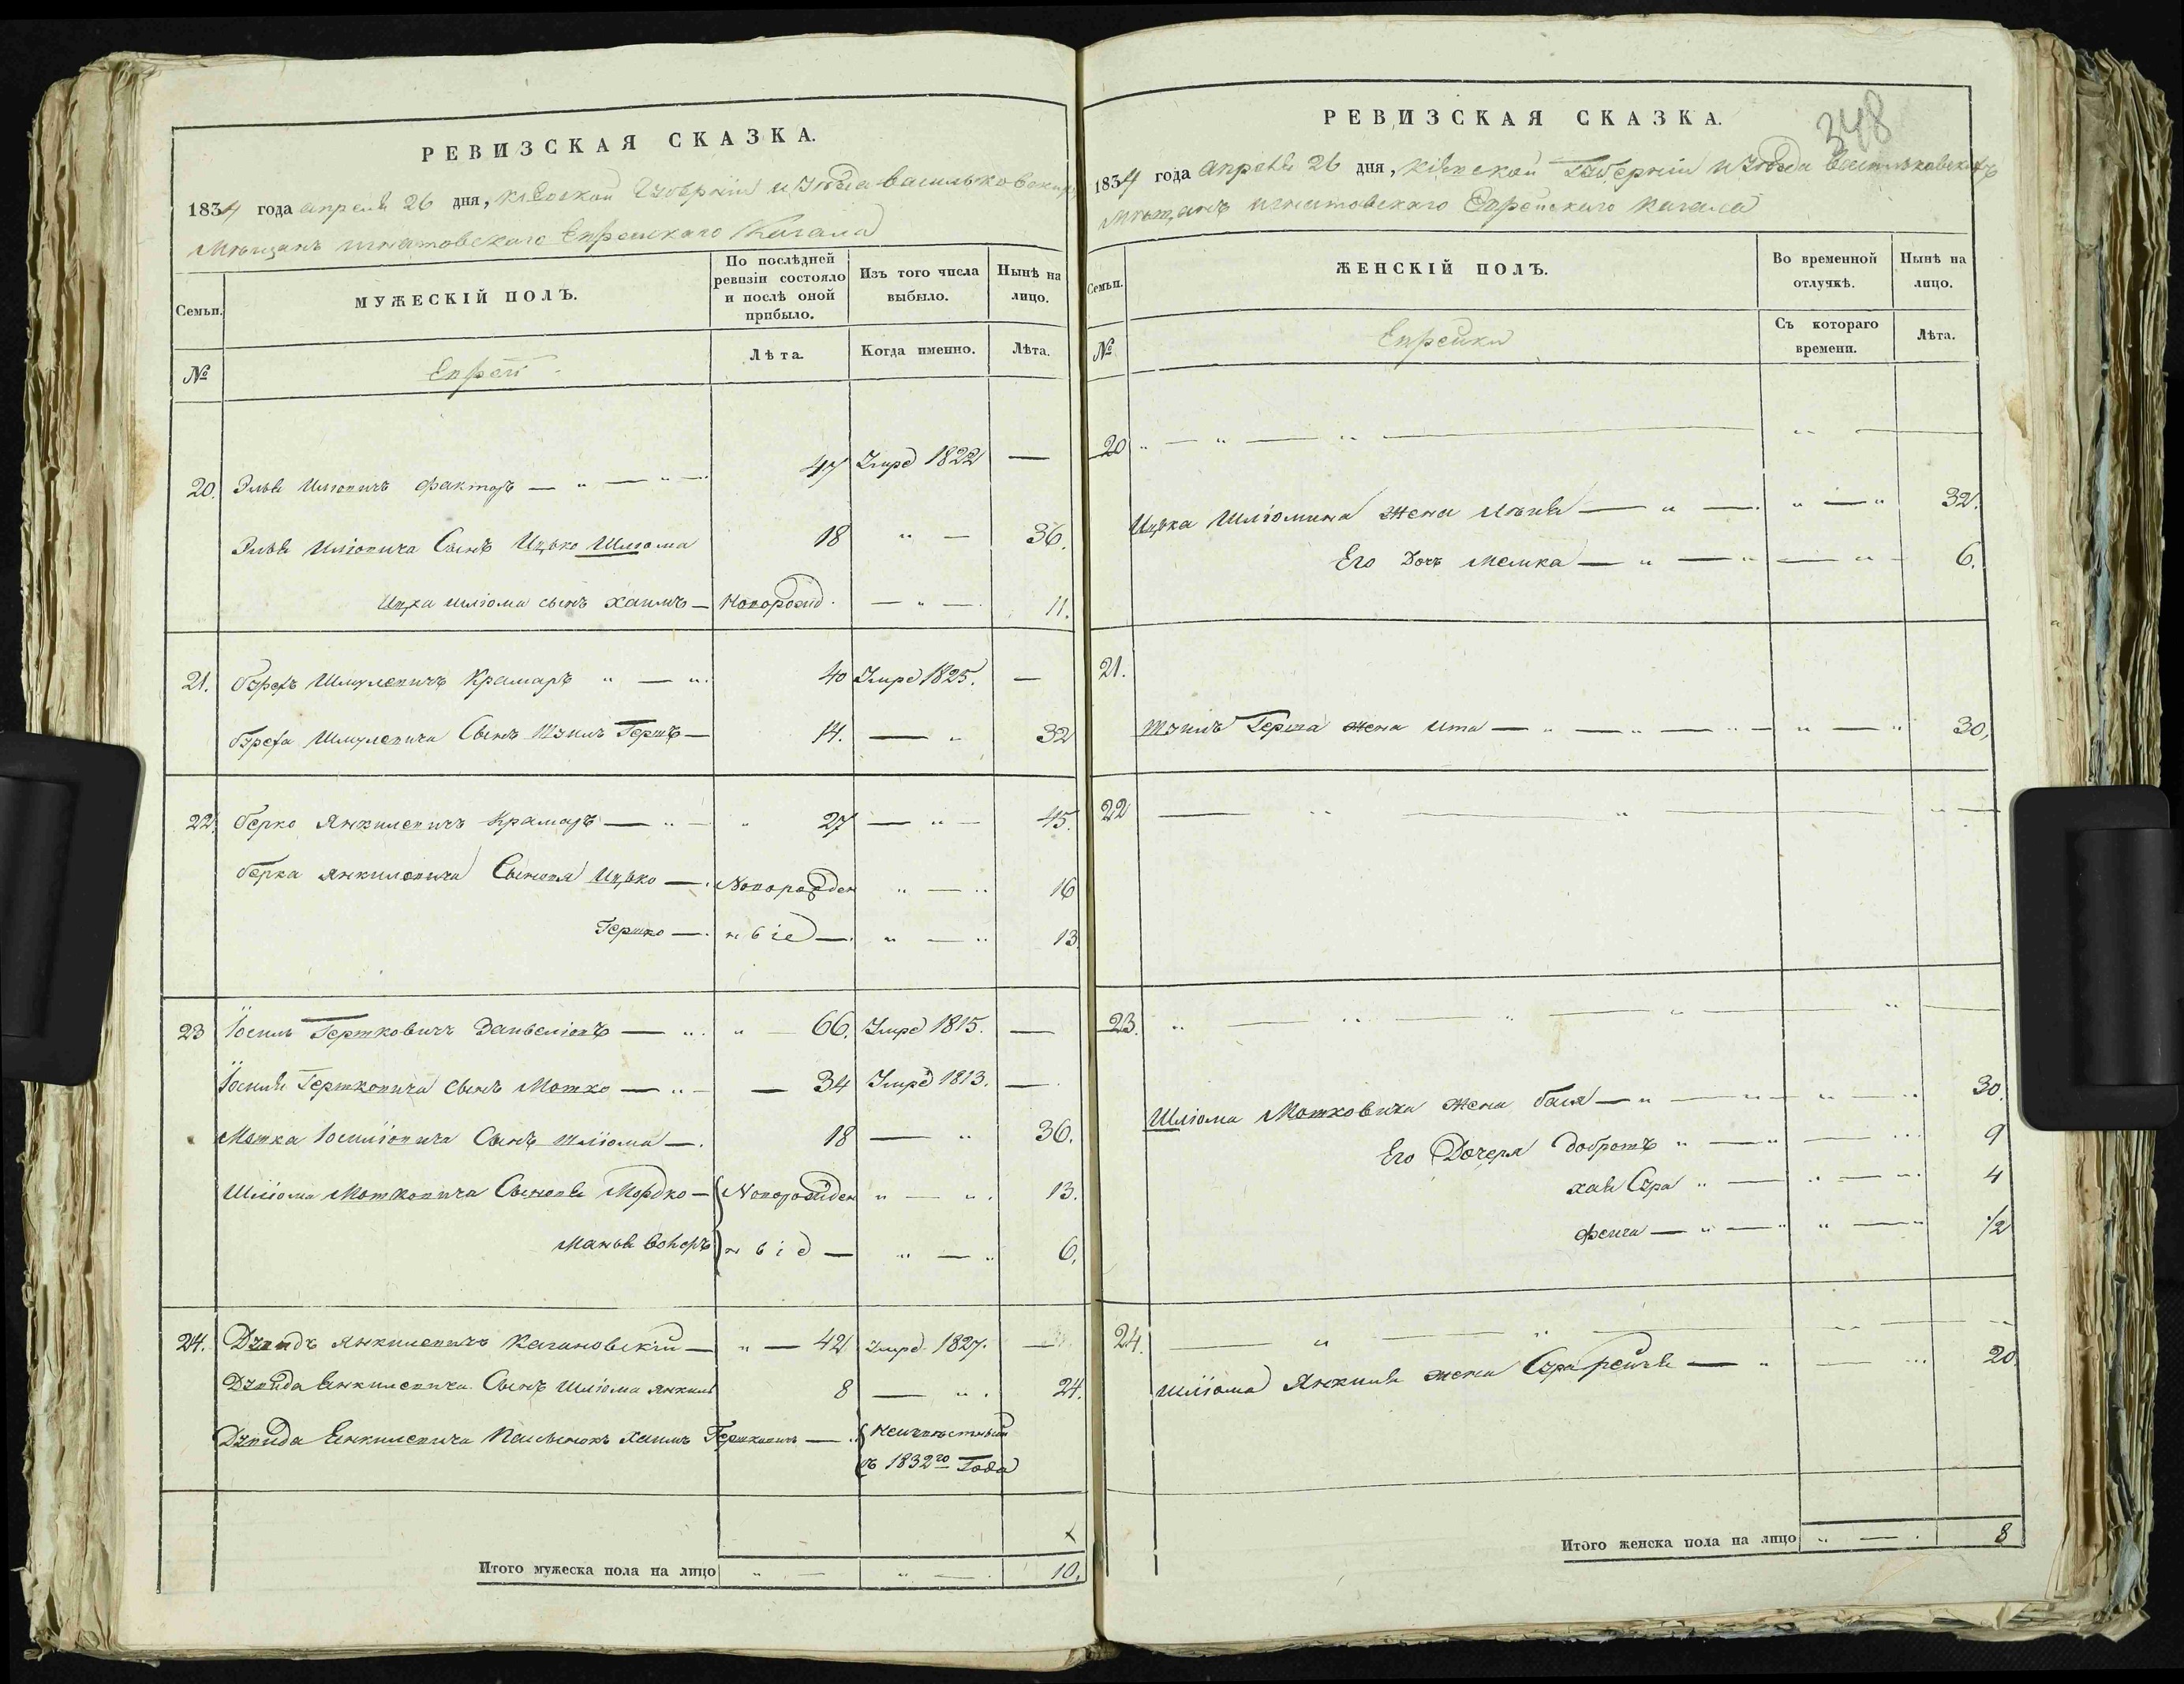 РЕВИЗСКАЯ СКАЗКА.
1834 года апреля 26 дня, Кіевской Губерніи и Уѣзда Васильковскихъ
Мѣщанъ Игнатовскаго Еврейскаго Кагала
Семьи.
МУЖЕСКІЙ ПОЛЪ.
По послѣдней ревизіи состояло и послѣ оной прибыло.
Изъ того числа выбыло.
Нынѣ на лицо.
№
Евреи
Лѣта.
Когда именно.
Лѣта.
20. Эля Шліовичъ Факторъ — " — " — 47 Умре 1822 —
Эля Шліовича Сынъ Ицько Шліома 18 " — 36.
Ицка Шліома сынъ Хаимъ — Новорожд. — " — 11.
21. Шмулевичъ Крамаръ " — " 40 Умре 1825. —
Шмулевича Сынъ Гершъ — 14. — " 32
22. Берко Янкилевичъ Крамаръ — " — " 27 — " — 45.
Берка Янкилевича Сыновя Ицько — Новорожден " — " 16
Гершко — ные — " — " 13.
23 Іосиль Гершковичъ — " " — 66. Умре 1815. —
Іосиля Гершковича сынъ Мошко — " — — 34 Умре 1813. —
Мошка Іосиліовича Сынъ Шліома — 18 — " 36.
Шліома Мошковича Сыновя Мордко — Новорожден " — " 13.
ные — " — " 6.
24. Дувидъ Янкилевичъ Кагановскій — " — 42 умре 1827. —
Дувида Енкилевича Сынъ Шліома Янкиль 8 — " 24.
Дувида Енкилевича Пасынокъ Хаимъ Гершковичъ — Неизвѣстный
съ 1832го Года
Итого мужеска пола на лицо " — " — 10.
348
РЕВИЗСКАЯ СКАЗКА.
1834 года апреля 26 дня, Кіевской Губерніи и Уѣзда Васильковскихъ
Мѣщанъ Игнатовскаго Еврейскаго Кагала
Семьи.
ЖЕНСКІЙ ПОЛЪ.
Во временной отлучкѣ.
Нынѣ на лицо.
№
Еврейки
Съ котораго времени.
Лѣта.
20 " — " — " — " —
Ицка Шліомина жена — " — " — " 32.
Его Дочъ Малка — " — " — " — 6.
21.
Герша жена Ита — " — " — " — " — " 30,
22 — " — " — " —
23. " — " — " — " — " —
Шліома Мошковича жена Бася — " — " — " 30.
Его Дочеря Доброшъ " — " — " 9
Хая Сура " — " — " 4
Фейга — " — " " — " 1/2
24. — " — " — " —
Шліома Янкиля жена Сура Рейзя — " — " 20.
Итого женска пола на лицо " — 8